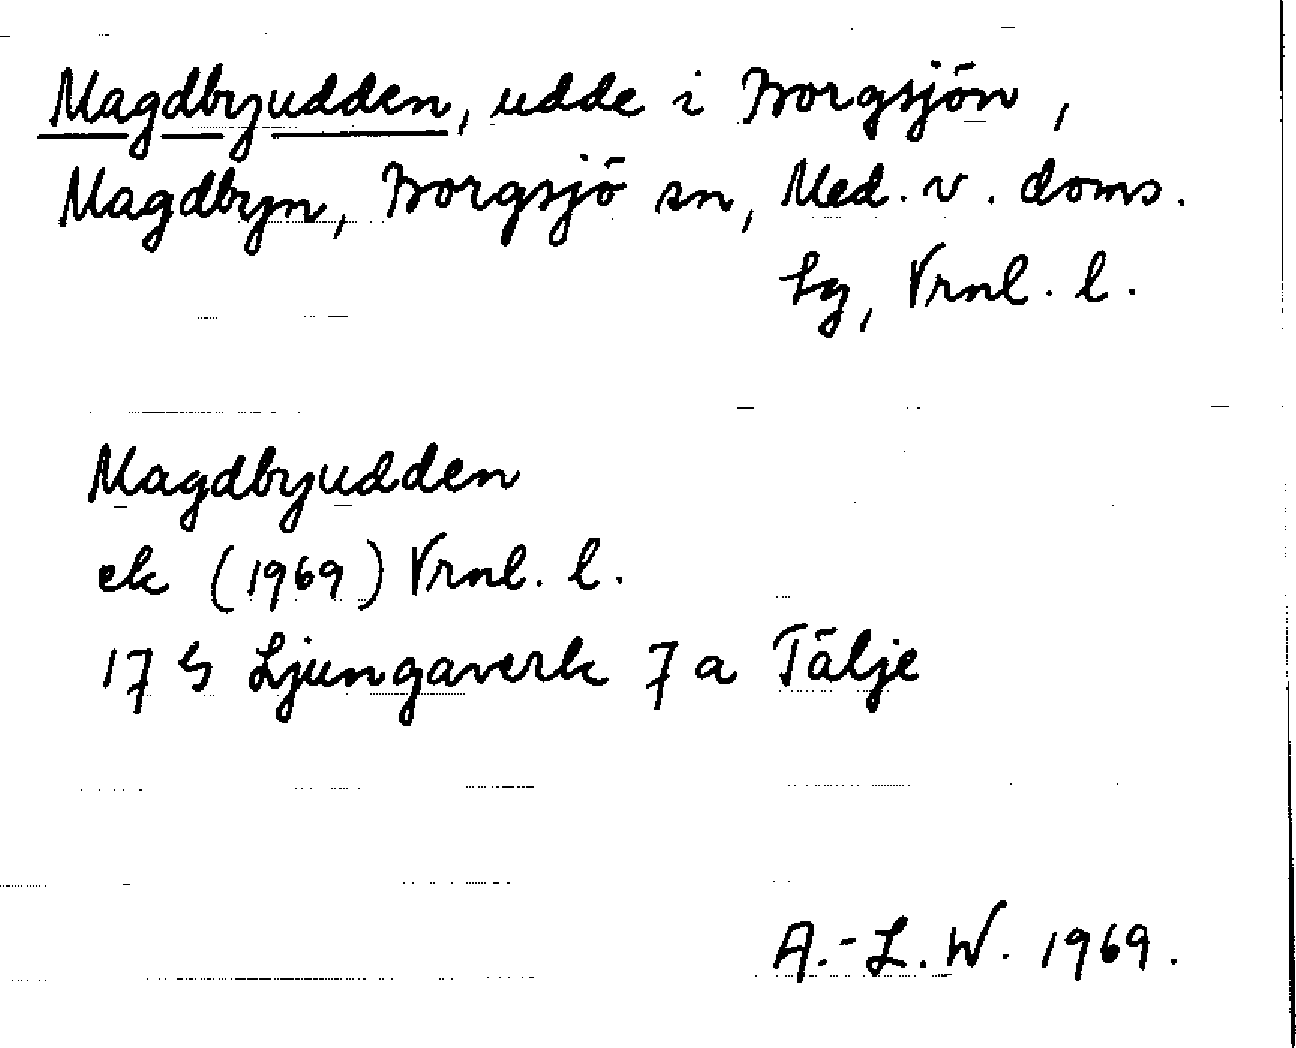 Magdbyudden, udde i Borgsjön,
Magdbyn, Borgsjö sn, Med. v. doms.
lg, Vrnl. l.
Magdbyudden
ek (1969) Vrnl. l.
17 G Ljungaverk 7 a Tälje
A.-L. W. 1969.